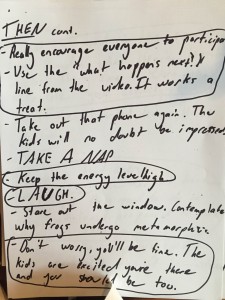 THEN cont.
- Really encourage everyone to particip
- Use the "what happens next?"
line from the video. It works a
treat.
- Take out that phone again. The
kids will no doubt be impressed
- TAKE A NAP
- Keep the energy level high
- LAUGH.
- Stare out the window. Contemplate
why frogs undergo metamorphis
- Don't worry, you'll be fine. The
kids are excited you're there
and you should be too.